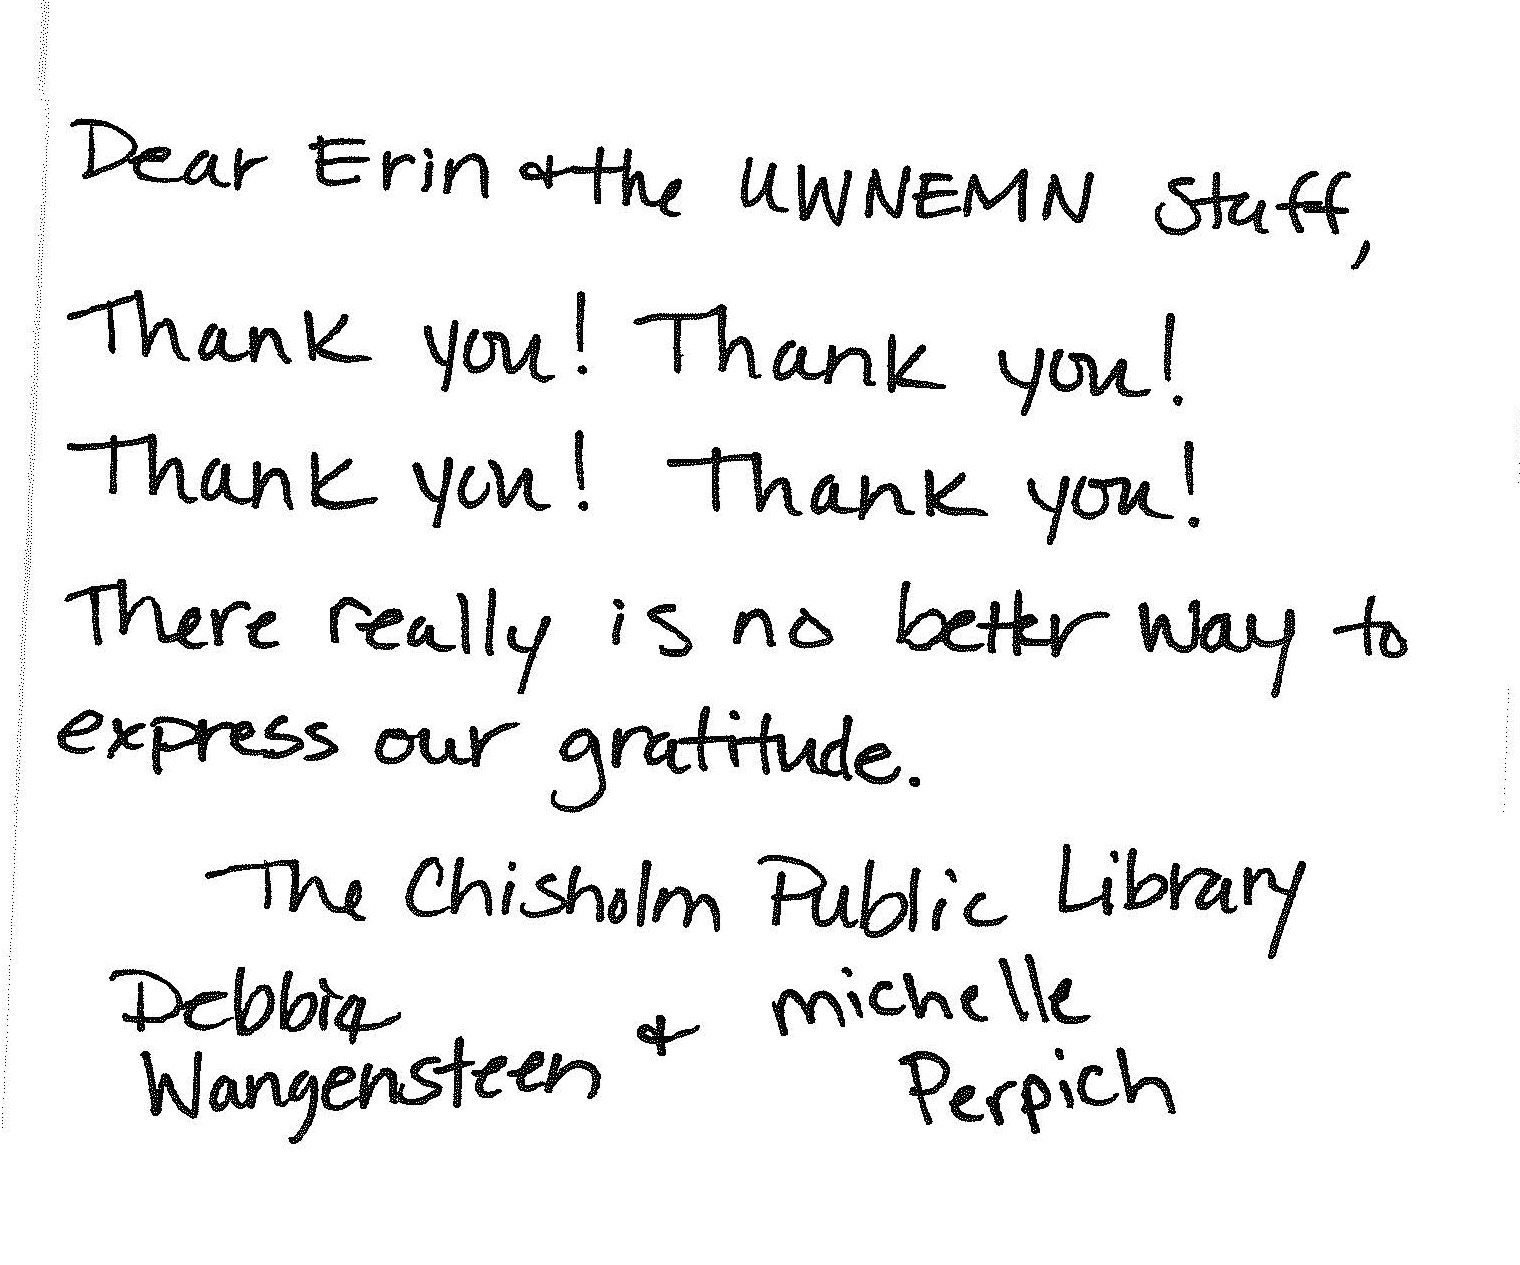 Dear Erin & the UWNEMN Staff,
Thank you! Thank you!
Thank you! Thank you!
There really is no better way to
express our gratitude.
The Chisholm Public Library
Debbie & michelle
Wangensteen Perpich